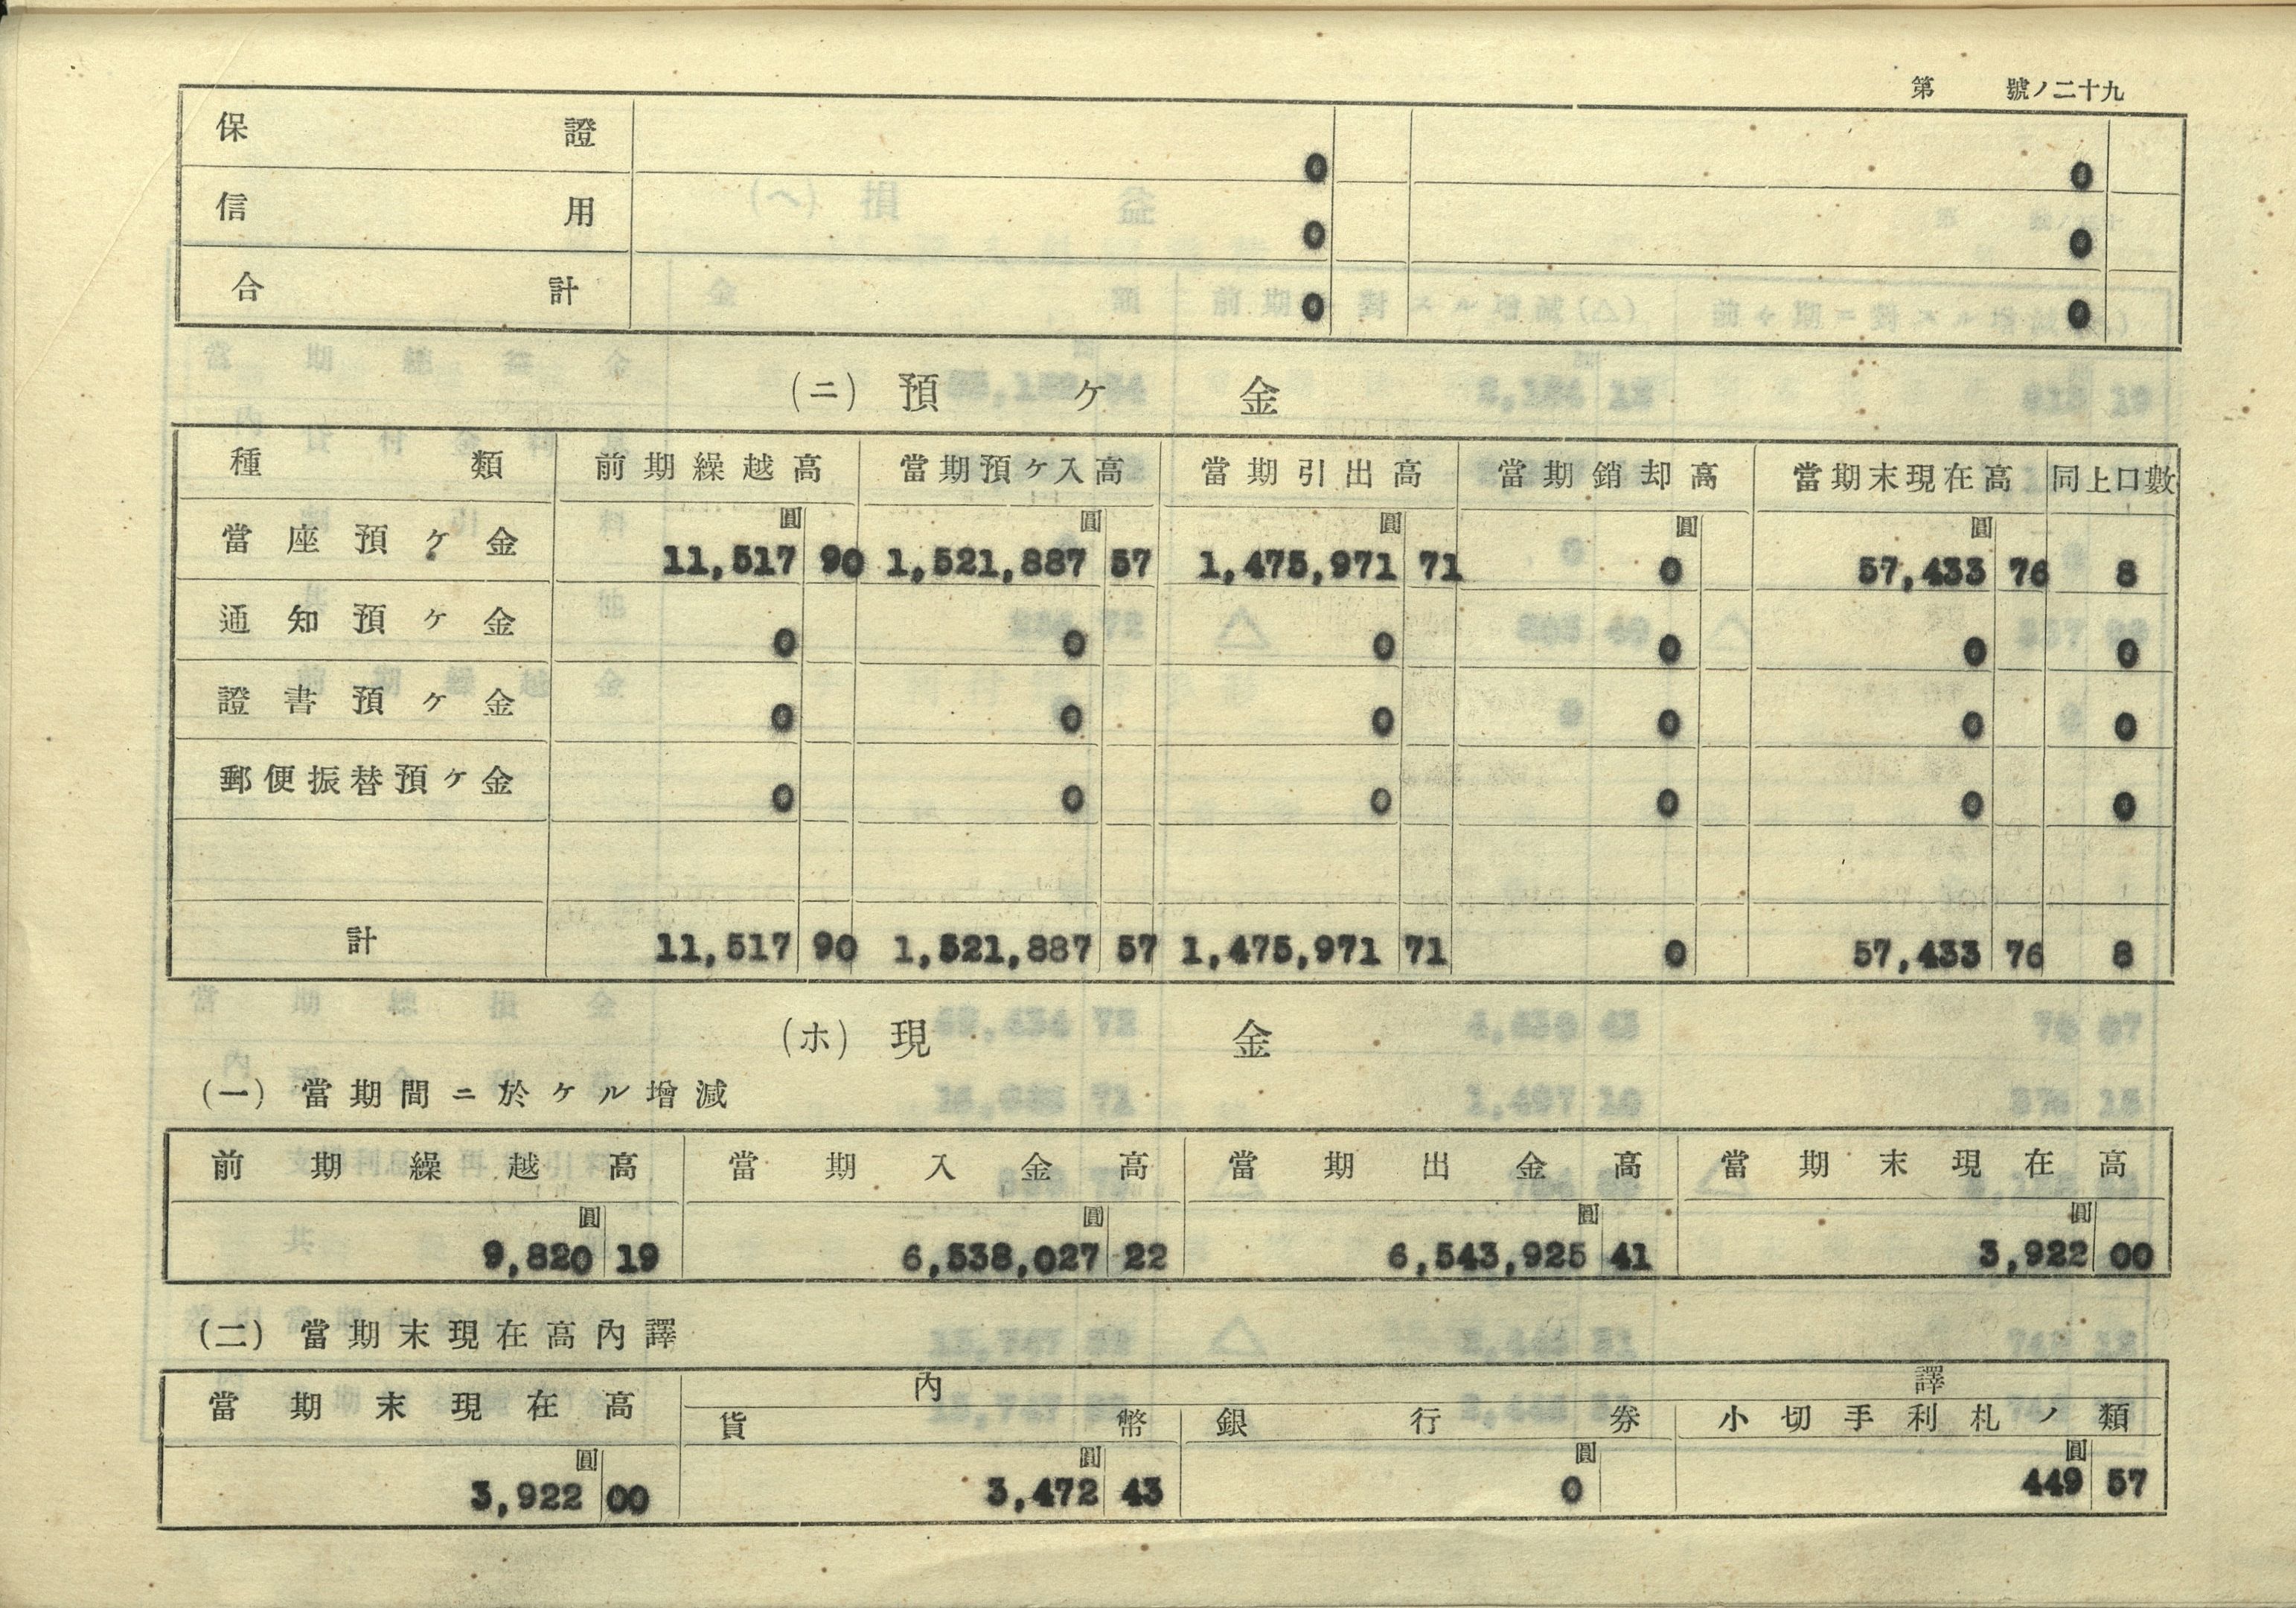 第 號ノ二十九
保證 0 0
信用 0 0
合計 0 0
(ニ) 預ケ金
種類 前期繰越高 當期預ケ入高 當期引出高 當期銷却高 當期末現在高 同上口數
圓 圓 圓 圓 圓
當座預ケ金 11,517 90 1,521,887 57 1,475,971 71 0 57,433 76 8
通知預ケ金 0 0 0 0 0 0
證書預ケ金 0 0 0 0 0 0
郵便振替預ケ金 0 0 0 0 0 0
計 11,517 90 1,521,887 57 1,475,971 71 0 57,433 76 8
(ホ) 現金
(一) 當期間ニ於ケル增減
前期繰越高 當期入金高 當期出金高 當期末現在高
圓 圓 圓 圓
9,820 19 6,538,027 22 6,543,925 41 3,922 00
(二) 當期末現在高內譯
當期末現在高 內譯
貨幣 銀行券 小切手利札ノ類
圓 圓 圓 圓
3,922 00 3,472 43 0 449 57